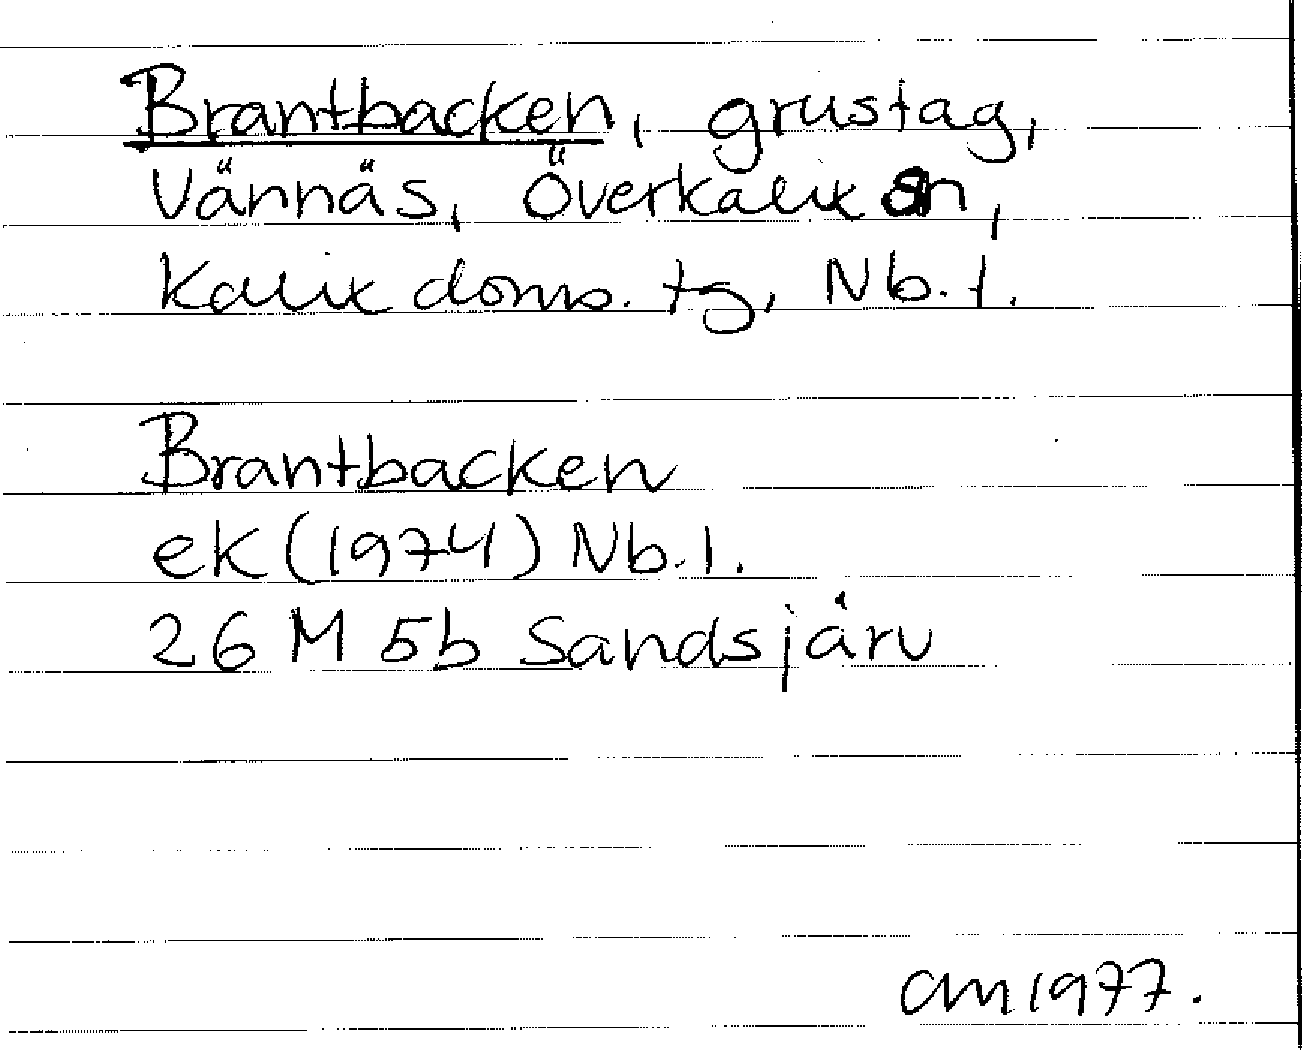 Brantbacken, grustag,
Vännäs, Överkalix sn,
Kalix doms. tg, Nb. l.
Brantbacken
ek (1974) Nb. l.
26 M 5b Sandsjärv
CM 1977.